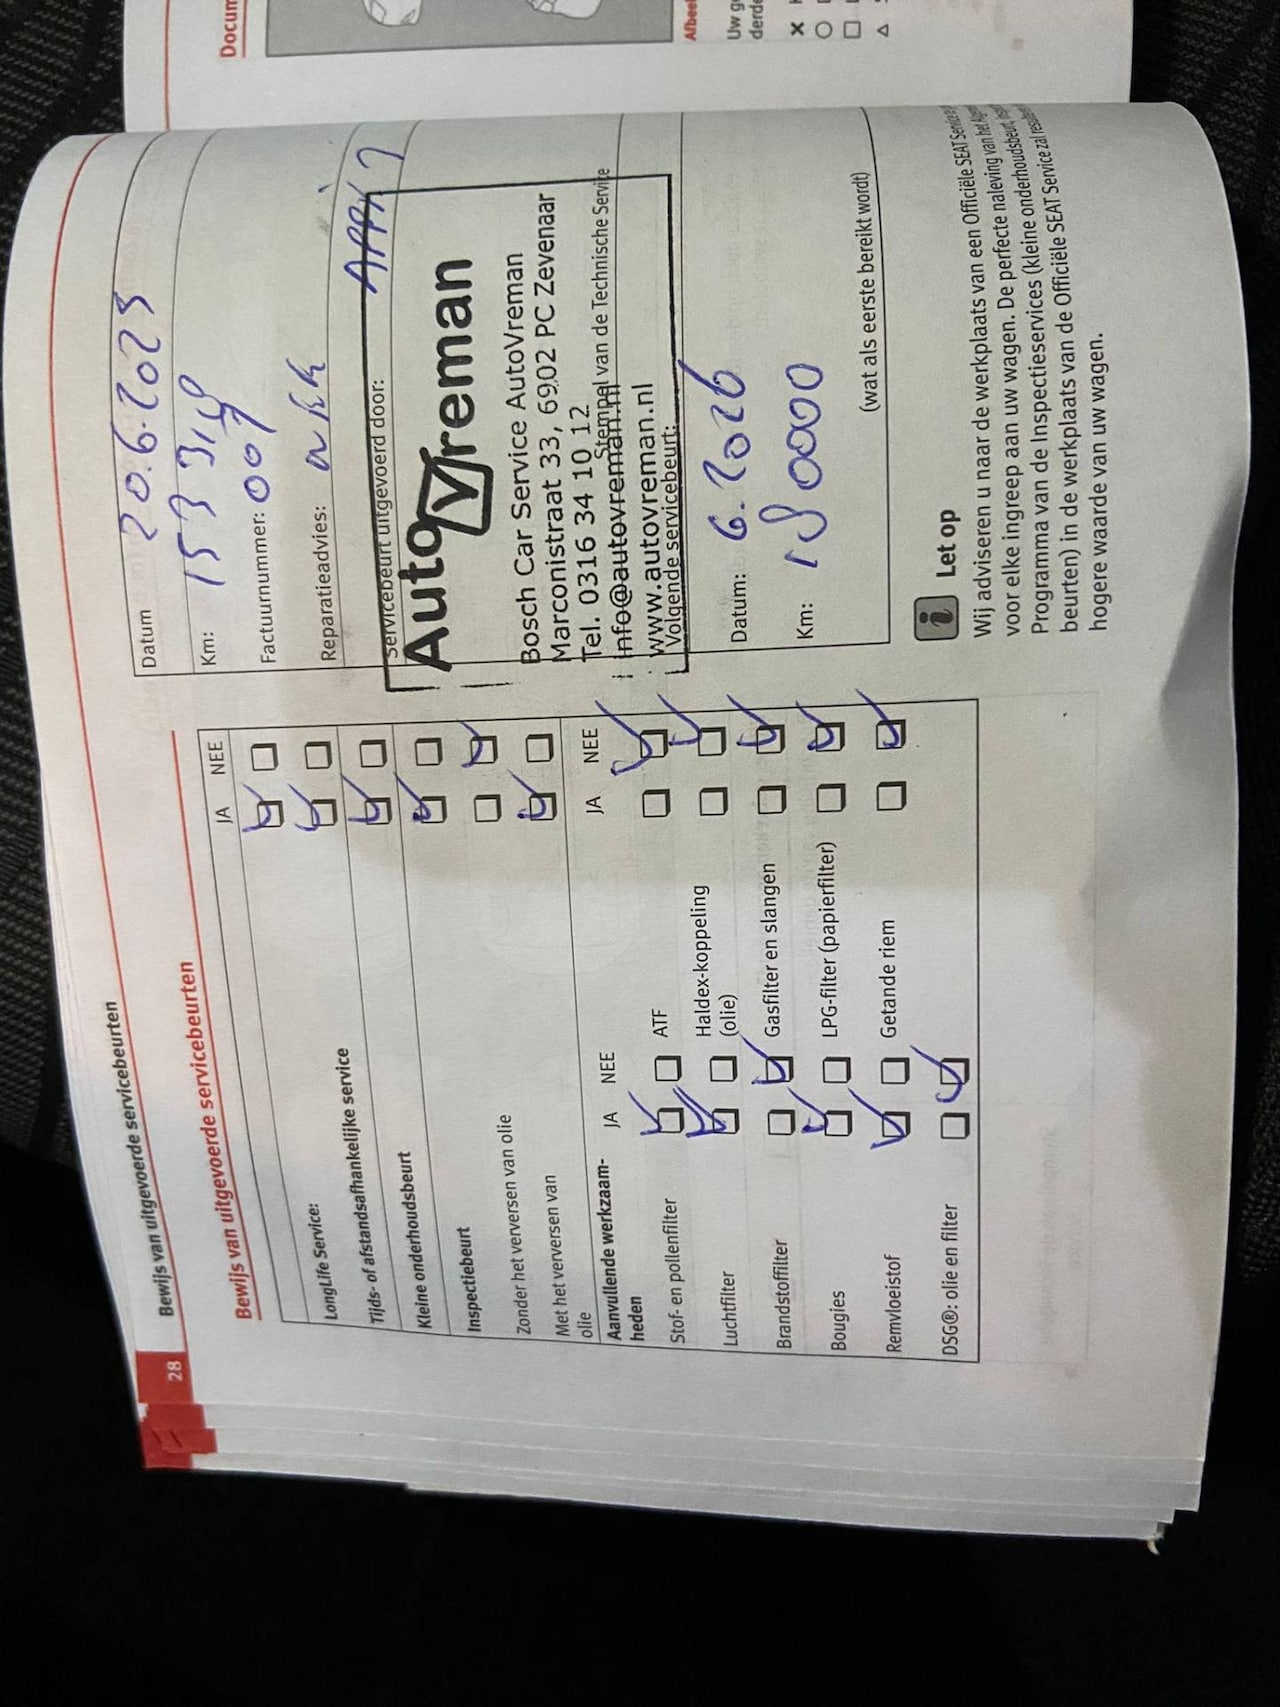 28
Bewijs van uitgevoerde servicebeurten
Bewijs van uitgevoerde servicebeurten
JA NEE
LongLife Service:
Tijds- of afstandsafhankelijke service
Kleine onderhoudsbeurt
Inspectiebeurt
Zonder het verversen van olie
Met het verversen van
olie
Aanvullende werkzaam-
heden
JA NEE
JA NEE
Stof- en pollenfilter
ATF
Luchtfilter
Haldex-koppeling
(olie)
Brandstoffilter
Gasfilter en slangen
Bougies
LPG-filter (papierfilter)
Remvloeistof
Getande riem
DSG®: olie en filter
Datum 20.6.2025
Km:
Facturnummer: 001
Reparatieadvies:
Servicebeurt uitgevoerd door:
AutoVreman
Bosch Car Service AutoVreman
Marconistraat 33, 6902 PC Zevenaar
Tel. 0316 34 10 12
Stempel van de Technische Service
info@autovreman.nl
www.autovreman.nl
Volgende servicebeurt:
Datum: 6.2026
Km: 180000
(wat als eerste bereikt wordt)
i Let op
Wij adviseren u naar de werkplaats van een Officiële SEAT Service
voor elke ingreep aan uw wagen. De perfecte naleving van het
Programma van de Inspectieservices (kleine onderhoudsbeurt,
beurten) in de werkplaats van de Officiële SEAT Service zal
hogere waarde van uw wagen.
Docum
Afbeel
Uw g
derde